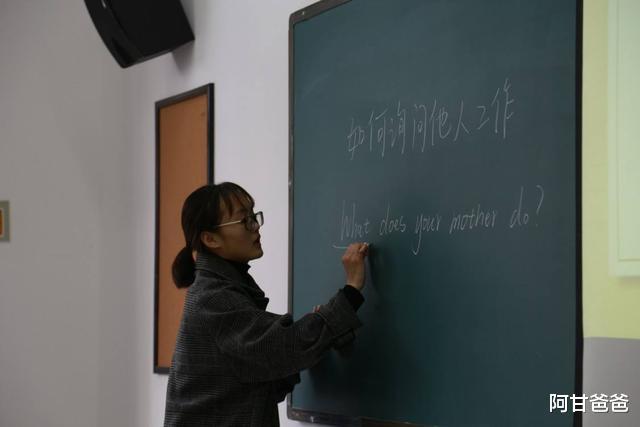 如何询问他人工作
What does your mother do?
阿甘爸爸